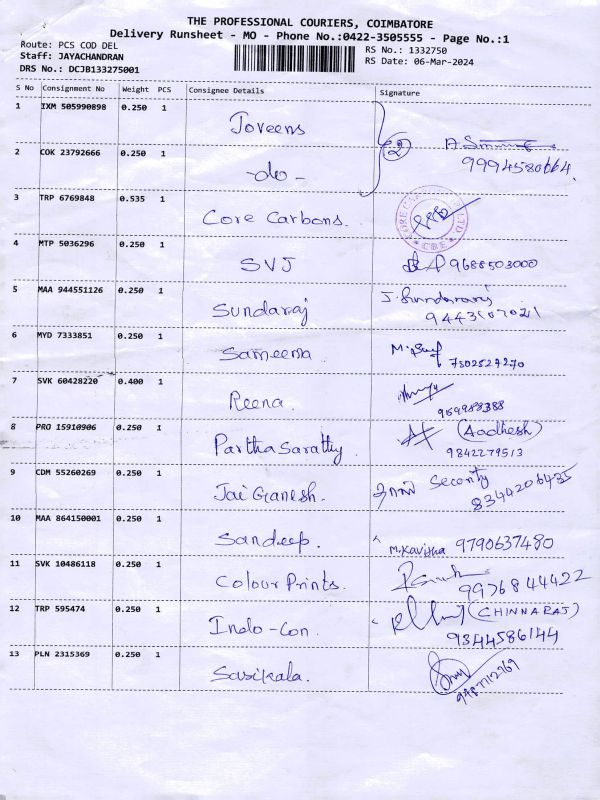 THE PROFESSIONAL COURIERS, COIMBATORE
Delivery Runsheet - MO - Phone No.:0422-3505555 - Page No.:1
Route: PCS COD DEL
Staff: JAYACHANDRAN
DRS No.: DCJB133275001
RS No.: 1332750
RS Date: 06-Mar-2024
S No Consignment No Weight PCS Consignee Details Signature
1 IXM 505990898 0.250 1 Joveens
2 COK 23792666 0.250 1 -do- 9994580664
3 TRP 6769848 0.535 1 Core Carbons.
4 MTP 5036296 0.250 1 SVJ 9688503000
5 MAA 944551126 0.250 1 Sundaraj J. Sundararaj
9443107021
6 MYD 7333851 0.250 1 Sameema
7502527270
7 SVK 60428220 0.400 1 Reena.
8 PRO 15910906 0.250 1 Partha Sarathy. (Aadhesh)
9842279513
9 CDM 55260269 0.250 1 Jai Ganesh. Security
8344206435
10 MAA 864150001 0.250 1 Sandeep. M.Kavitha 9790637480
11 SVK 10486118 0.250 1 Colour Prints.
9976844422
12 TRP 595474 0.250 1 Indo-Con. (CHINNARAJ)
9344586144
13 PLN 2315369 0.250 1 Sasikala.